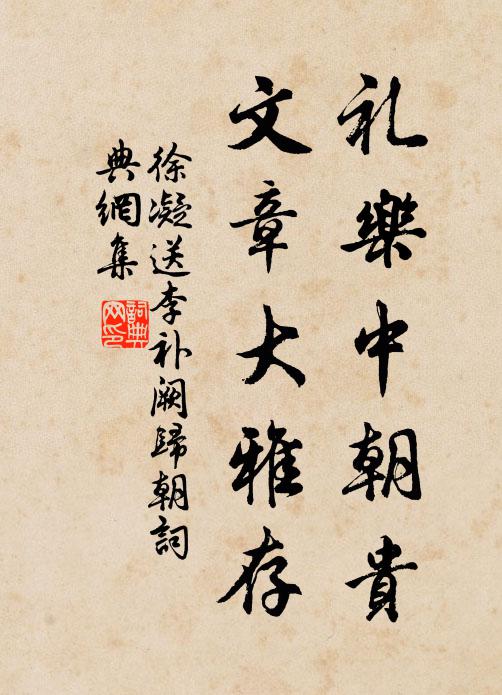 礼樂中朝貴
文章大雅存
徐凝送李补阙歸朝詞
典網集
詞典网印